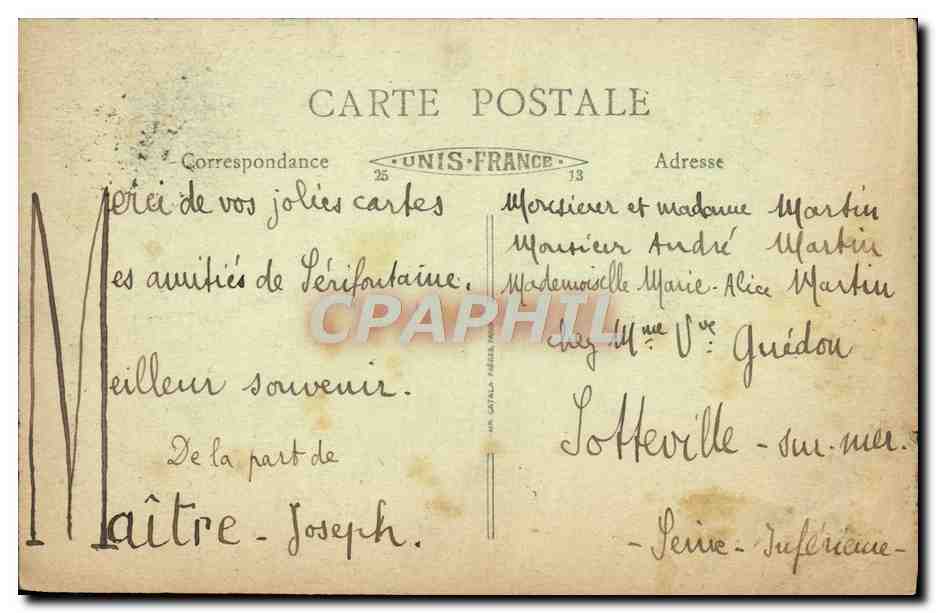 CARTE POSTALE
Correspondance
UNIS-FRANCE
25 13
Adresse
Merci de vos jolies cartes
Mes amitiés de Sérifontaine.
Meilleur souvenir.
De la part de
Maître - Joseph.
IMP. CATALA FRÈRES, PARIS
Monsieur et madame Martin
Monsieur André Martin
Mademoiselle Marie-Alice Martin
chez Mme Vve Guédon
Sotteville - sur-mer.
- Seine - Inférieure -
CPAPHIL